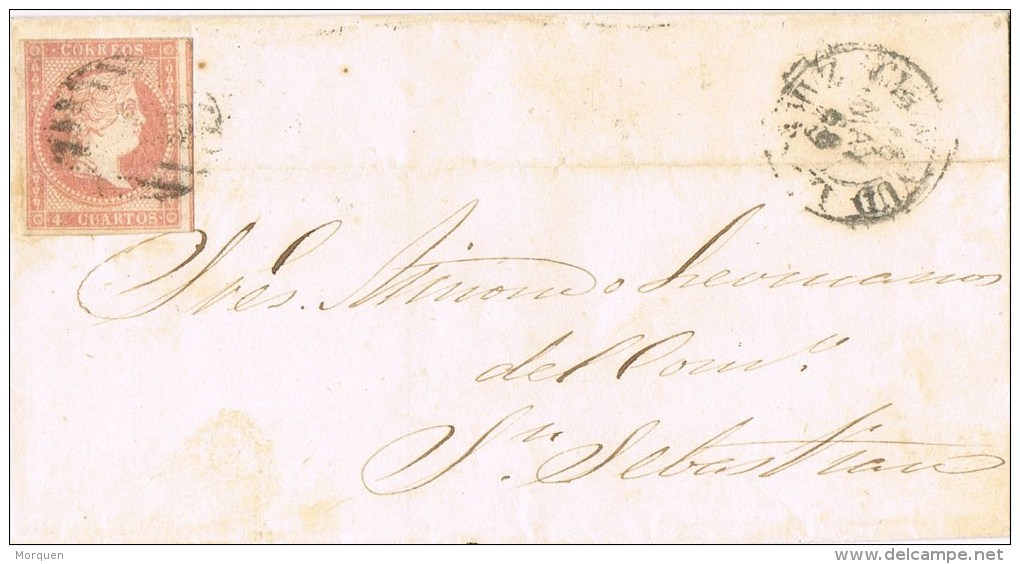 CORREOS
4 CUARTOS
Sres. hermanos
del Com.º
Sn. Sebastian
Morquen
www.delcampe.net